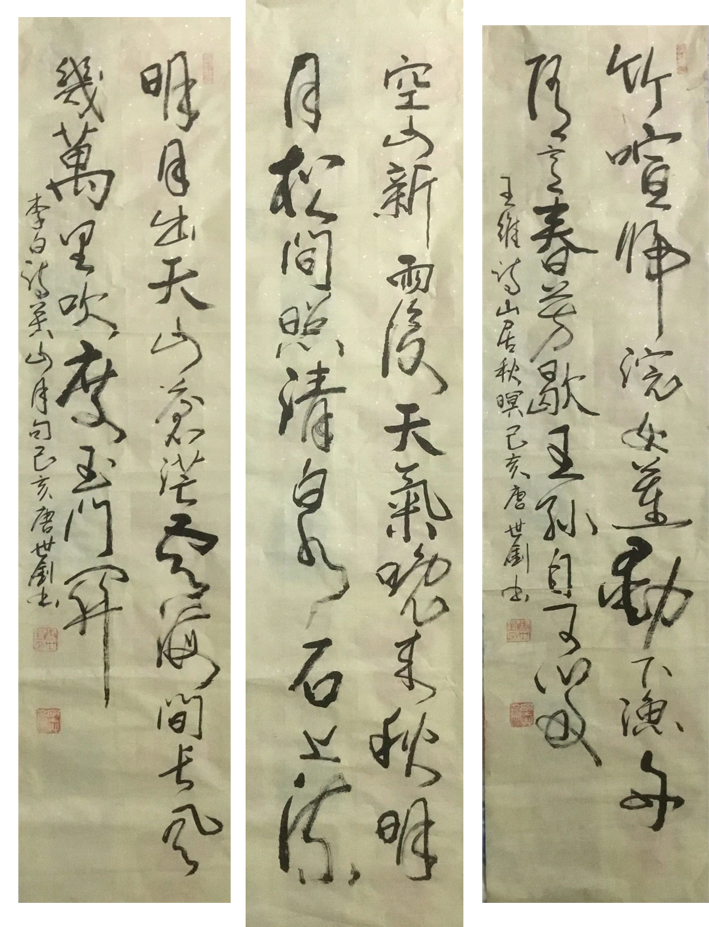 明月出天山蒼茫雲海間長風
幾萬里吹度玉門關
李白詩關山月句己亥唐世劍書
空山新雨後天氣晚來秋明
月松間照清泉石上流
竹喧歸浣女蓮動下漁舟
隨意春芳歇王孫自可留
王維詩山居秋暝己亥唐世劍書